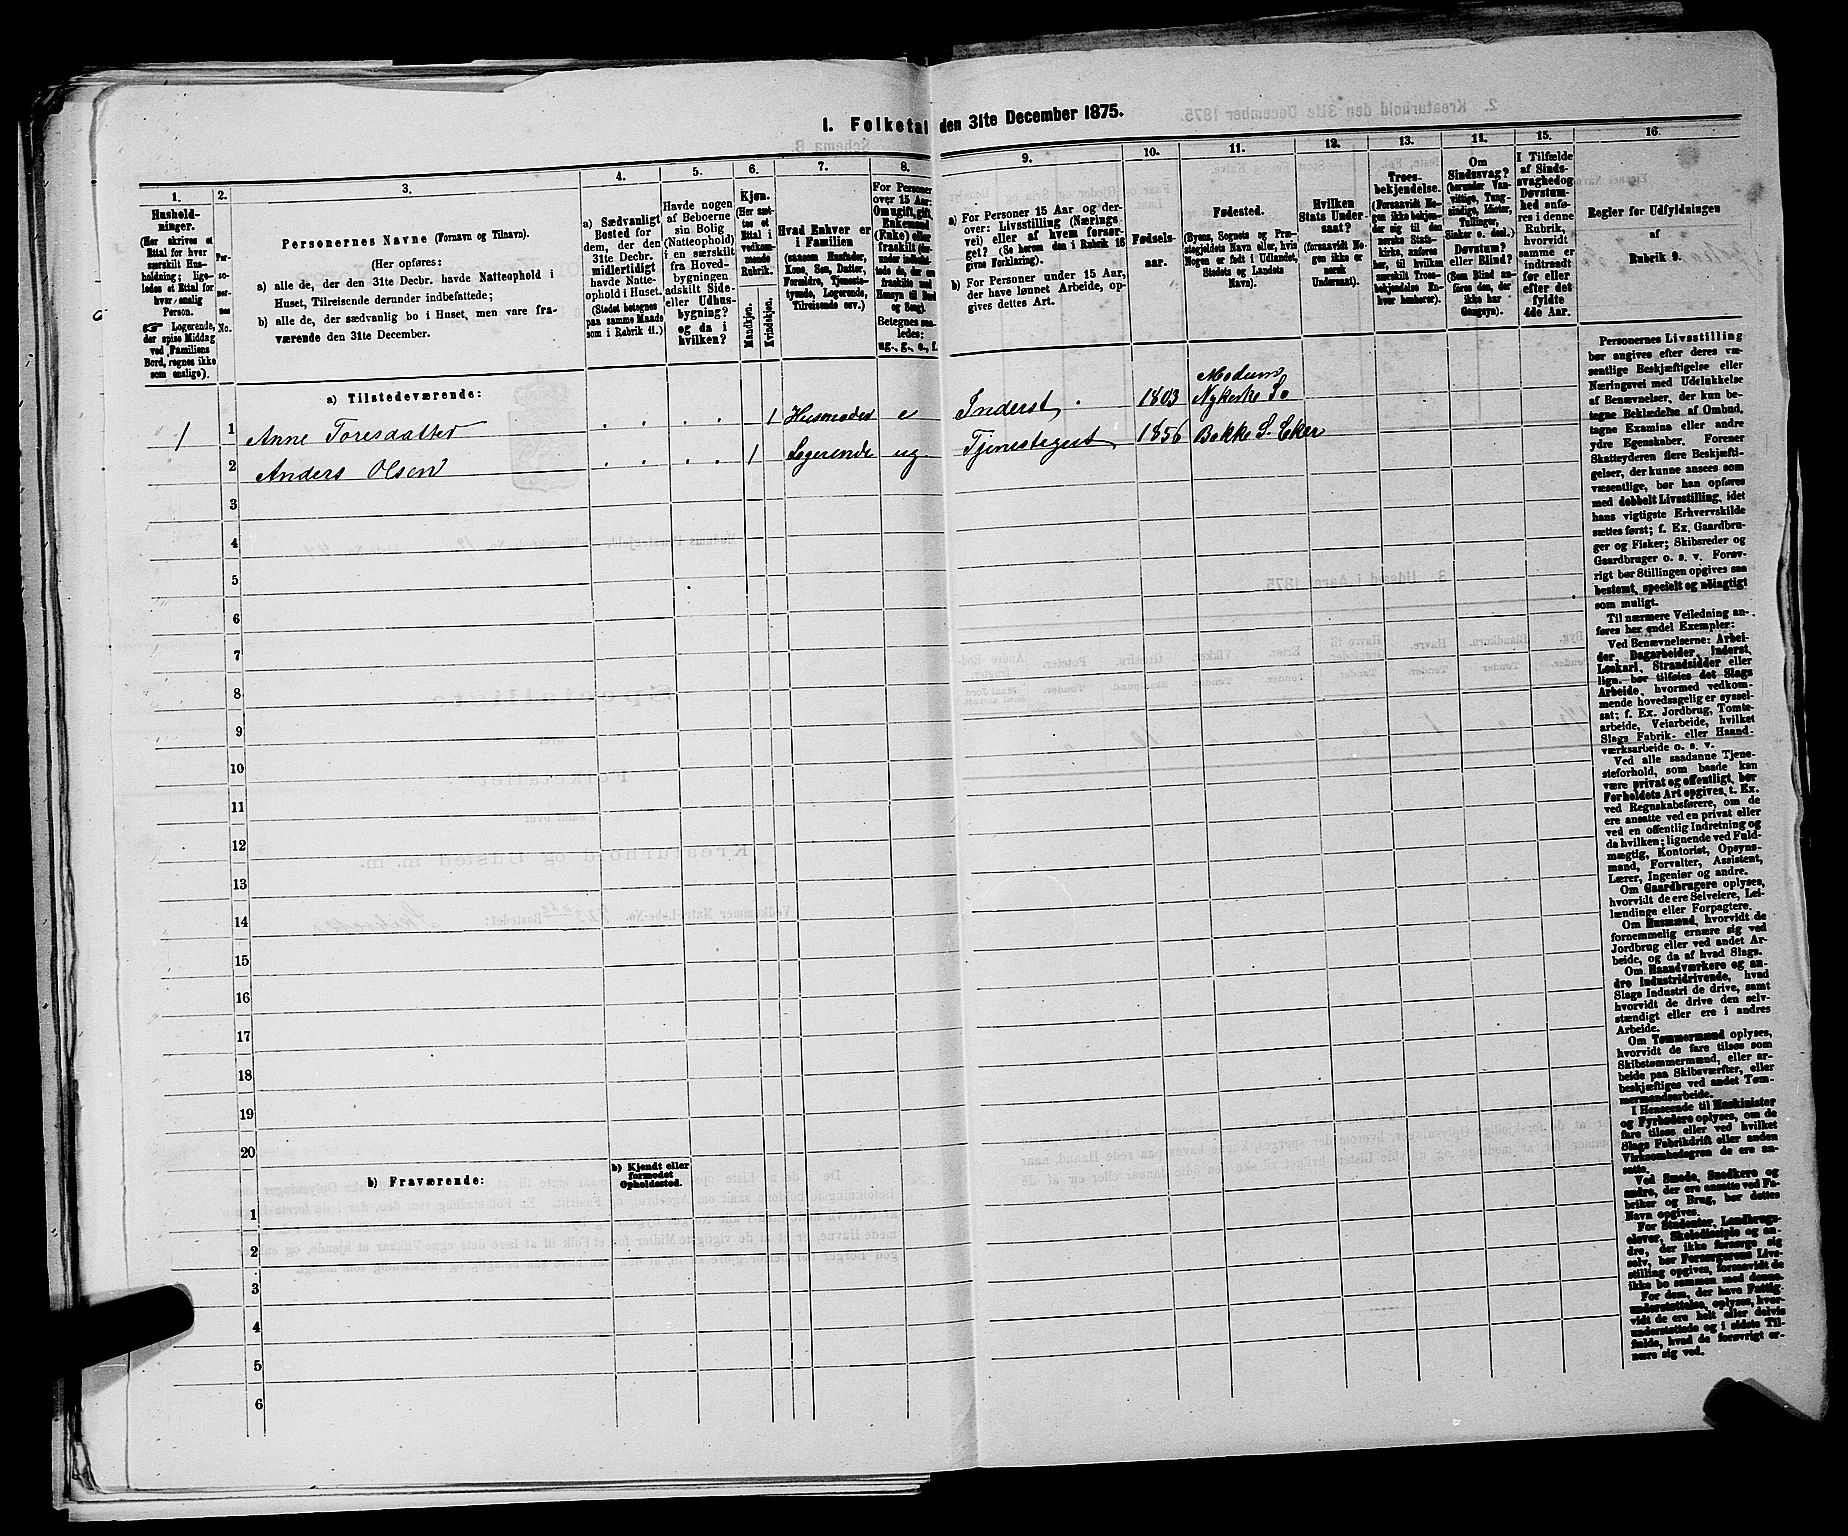 1. Folketal den 31te December 1875.
1.
Hushold-
ninger.
(Her skrives et
Ettal for hver
særskilt Hus-
holdning; lige-
ledes et Ettal for
hver enslig
Person.
☞ Logerende,
der spise Middag
ved Familiens
Bord, regnes ikke
som enslige).
2.
Per-
so-
ner-
nes
No.
3.
Personernes Navne (Fornavn og Tilnavn).
(Her opføres:
a) alle de, der den 31te Decbr. havde Natteophold i
Huset, Tilreisende derunder indbefattede;
b) alle de, der sædvanlig bo i Huset, men vare fra-
værende den 31te December.
4.
a) Sædvanligt
Bosted for
dem, der den
31te Decbr.
midlertidigt
havde Natte-
ophold i Huset.
(Stedet betegnes
paa samme Maade
som i Rubrik 11.)
5.
Havde nogen
af Beboerne
sin Bolig
(Natteophold)
i en særskilt
fra Hoved-
bygningen
adskilt Side-
eller Udhus-
bygning?
og da i
hvilken?
6.
Kjøn.
(Her sæt-
tes et
Ettal i
vedkom-
mende
Rubrik.
Mandkjøn.
Kvindekjøn.
7.
Hvad Enhver er
i Familien
(saasom Husfader,
Kone, Søn, Datter,
Forældre, Tjeneste-
tyende, Logerende,
Tilreisende osv.)
8.
For Personer
over 15 Aar:
Om ugift, gift,
Enkemand
(Enke) eller
fraskilt
Betegnes saa-
ledes:
ug., g., e., f.
9.
a) For Personer 15 Aar og der-
over: Livsstilling (Nærings-
vei) eller af hvem forsør-
get? (Se herom den i Rubrik 16
givne Forklaring).
b) For Personer under 15 Aar,
der have lønnet Arbeide, op-
gives dettes Art.
10.
Fødsels-
aar.
11.
Fødested.
(Byens, Sognets og Præ-
stegjeldets Navn eller, hvis
Nogen er født i Udlandet,
Stedets og Landets
Navn).
12.
Hvilken
Stats Under-
saat?
(forsaavidt No-
gen ikke er
norsk
Undersaat).
13.
Troes-
bekjendelse.
(Forsaavidt No-
gen ikke bekjen-
der sig til den
norske Stats-
kirke, anføres
her, til hvilken
særskilt Troes-
bekjendelse En-
hver henhører).
14.
Om
Sindssvag?
(herunder Van-
vittige, Tung-
sindige, Idioter,
Tullinger,
Sinker o. desl.)
Døvstum?
eller Blind?
(Som Blind an-
føres den, der
ikke har
Gangsyn).
15.
I Tilfælde
af Sinds-
svaghed og
Døvstum-
hed anfø-
res i denne
Rubrik,
hvorvidt
samme er
indtraadt
før eller
efter det
fyldte
4de Aar.
16.
Regler for Udfyldningen
af
Rubrik 9.
a) Tilstedeværende:
1 1 Anne Toresdatter 1 Husmoder e Inderst 1803 Modum
Nykirke So
2 Anders Olsen 1 Logerende ug Tjenestegut 1856 Bakke S. Eker
3
4
5
6
7
8
9
10
11
12
13
14
15
16
17
18
19
20
b) Fraværende:
b) Kjendt eller
formodet
Opholdssted.
1
2
3
4
5
6
Personernes Livsstilling
bør angives efter deres væ-
sentlige Beskjæftigelse eller
Næringsvei med Udelukkelse
af Benævnelser, der kun be-
tegne Beklædelse af Ombud,
tagne Examina eller andre
ydre Egenskaber. Forener
Skatteyderen flere Beskjæfti-
gelser, der kunne ansees som
væsentlige, bør han opføres
med dobbelt Livsstilling, idet
hans vigtigste Erhvervskilde
sættes først; f. Ex. Gaardbru-
ger og Fisker; Skibsreder og
Gaardbruger o. s. v. Forøv-
rigt bør Stillingen opgives saa
bestemt, specielt og nøiagtigt
som muligt.
Til nærmere Veiledning an-
føres her endel Exempler:
Ved Benævnelserne: Arbei-
der, Dagarbeider, Inderst,
Løskarl, Strandsidder eller
lign. bør tilføies det Slags
Arbeide, hvormed vedkom-
mende hovedsagelig er syssel-
sat; f. Ex. Jordbrug, Tomte-
arbeide, Veiarbeide, hvilket
Slags Fabrik- eller Haand-
værksarbeide o. s. v.
Ved alle saadanne Tjene-
steforhold, som baade kan
være privat og offentligt, bør
Forholdets Art opgives, t. Ex.
ved Regnskabsførere, om de
ere ansatte ved en privat eller
ved en offentlig Indretning og
da hvilken; lignende ved Fuld-
mægtig, Kontorist, Opsyns-
mand, Forvalter, Assistent,
Lærer, Ingeniør og andre.
Om Gaardbrugere oplyses,
hvorvidt de ere Selveiere, Lei-
lændinge eller Forpagtere.
Om Husmænd, hvorvidt de
fornemmelig ernære sig ved
Jordbrug eller ved andet Ar-
beide, og da af hvad Slags.
Om Haandværkere og an-
dre Industridrivende, hvad
Slags Industri de drive, samt
hvorvidt de drive den selv-
stændigt eller ere i andres
Arbeide.
Om Tømmermænd oplyses,
hvorvidt de fare tilsøs som
Skibstømmermænd, eller ar-
beide paa Skibsværfter, eller
beskjæftiges ved andet Tøm-
mermandsarbeide.
I Henseende til Maskinister
og Fyrbødere oplyses, om de
fare tilsøs eller ved hvilket
Slags Fabrikdrift eller anden
Virksomhedsgren de ere an-
satte.
Ved Smede, Snedkere og
andre, der ere ansatte ved Fa-
briker og Brug, bør dettes
Navn opgives.
For Studenter, Landbrugs-
elever, Skoledisciple og an-
dre, der ikke forsørge sig
selv, bør Forsørgerens Livs-
stilling opgives, forsaavidt de
ikke bo sammen med denne.
For dem, der have Fattig-
understøttelse, oplyses, hvor-
vidt de ere helt eller delvis
understøttede og i sidste Til-
fælde, hvad de forøvrigt er-
nære sig ved.